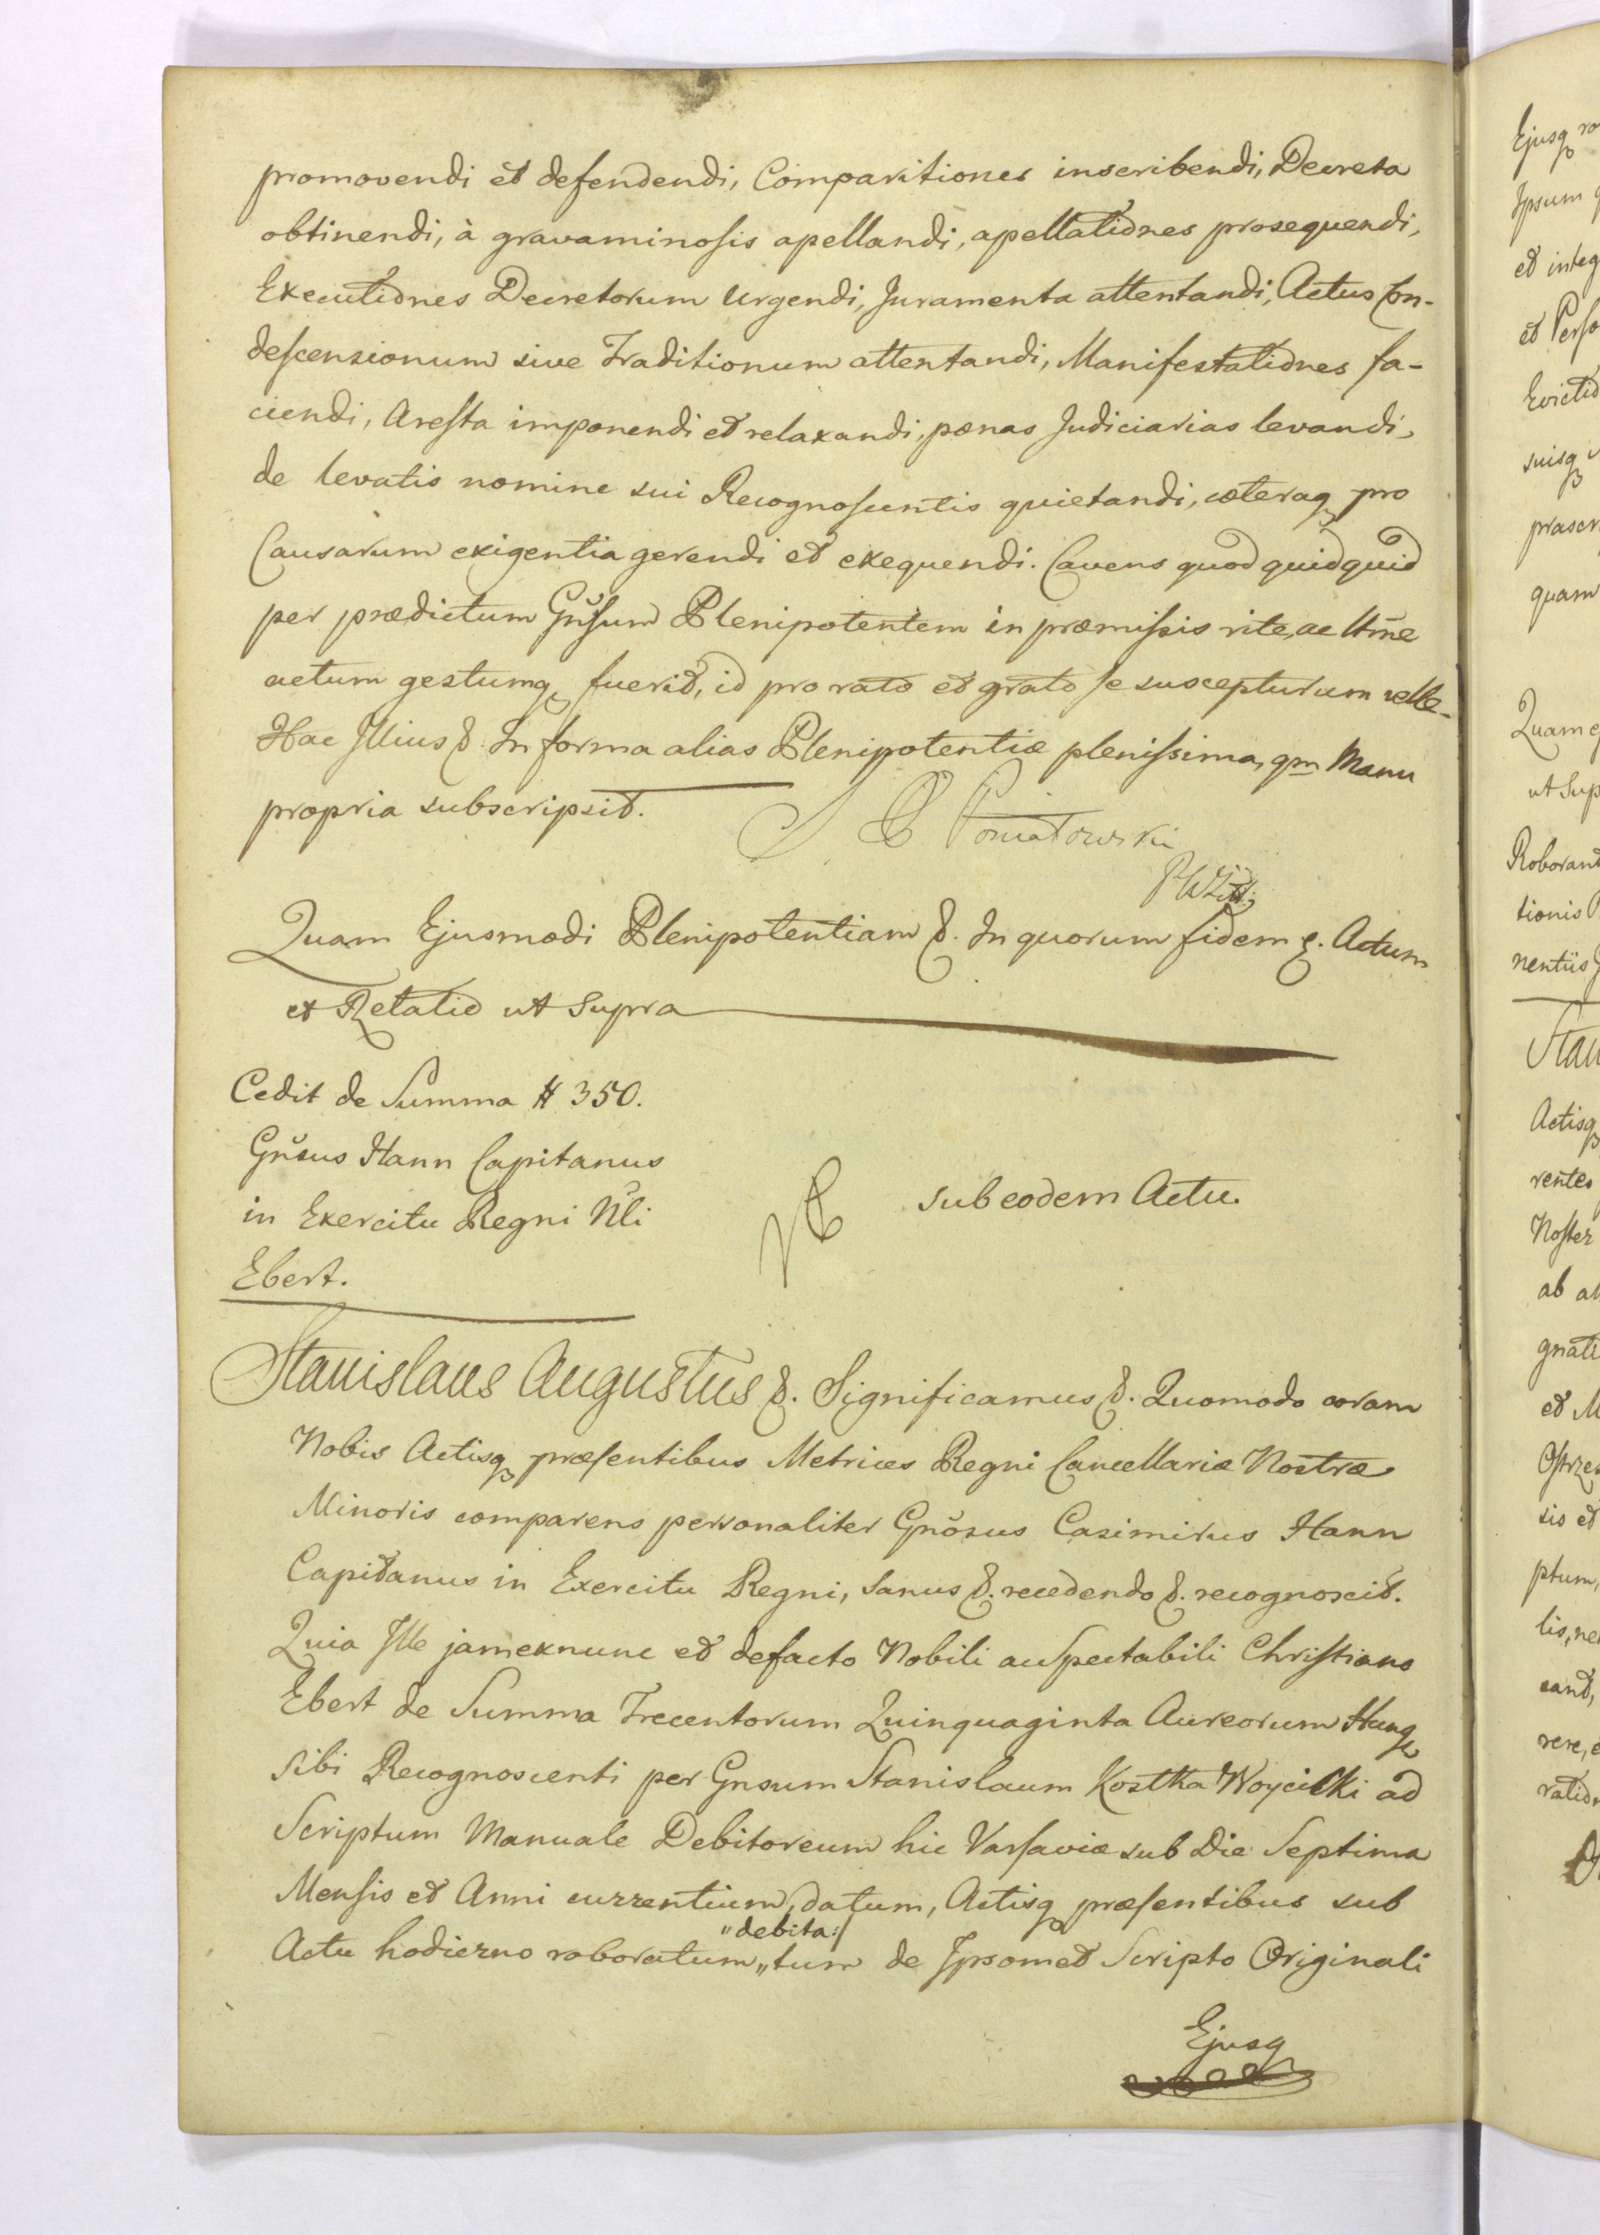 promovendi et defendendi, Comparitiones inscribendi, Decreta
obtinendi, à gravaminosis apellandi, apellationes prosequendi,
Executiones Decretorum urgendi, Juramenta attentandi, Actus Con-
descensionum sive Traditionum attentandi, Manifestationes fa-
ciendi, Aresta imponendi et relaxandi, pænas Judiciarias levandi,
de levatis nomine sui Recognoscentis quietandi, cæteraq pro
Causarum exigentia gerendi et exequendi. Cavens quod quidquid
per prædictum Gnsum Plenipotentem in præmissis rite, ac ltme
actum gestumq fuerit, id pro rato et grato se suscepturum velle.
Hac Illius &. In forma alias Plenipotentiæ plenissima, qm Manu
propria subscripsit.
Poniatowski
Quam Ejusmodi Plenipotentiam &. In quorum fidem &. Actum
et Relatio ut Supra
Cedit de Summa # 350.
Gnsus Hann Capitanus
in Exercitu Regni Nli
Ebert.
sub eodem Actu.
Stanislaus Augustus &. Significamus &. Quomodo coram
Nobis Actisq præsentibus Metrices Regni Cancellariæ Nostræ
Minoris comparens personaliter Gnosus Casimirus Hann
Capitanus in Exercitu Regni, Sanus &. recedendo &. recognoscit.
Quia Ille jam ex nunc et de facto Nobili ac Spectabili Christiano
Ebert de Summa Trecentorum Quinquaginta Aureorum Hung
sibi Recognoscenti per Gnsum Stanislaum Kostka Woycicki ad
Scriptum Manuale Debitoreum hic Varsaviæ sub Die Septima
Mensis et Anni currentium, datum, Actisq præsentibus sub
"debita:/
Actu hodierno roboratum „ tum de Ipsomet Scripto Originali
Ejusq
Ejusq
Ipsum
et integ
et Perso
suisq
quam
ut Sup
Roborand
tionis
nentiis
Stan
Actisq
rentes
Noster
ab
et M
sis et
ptum,